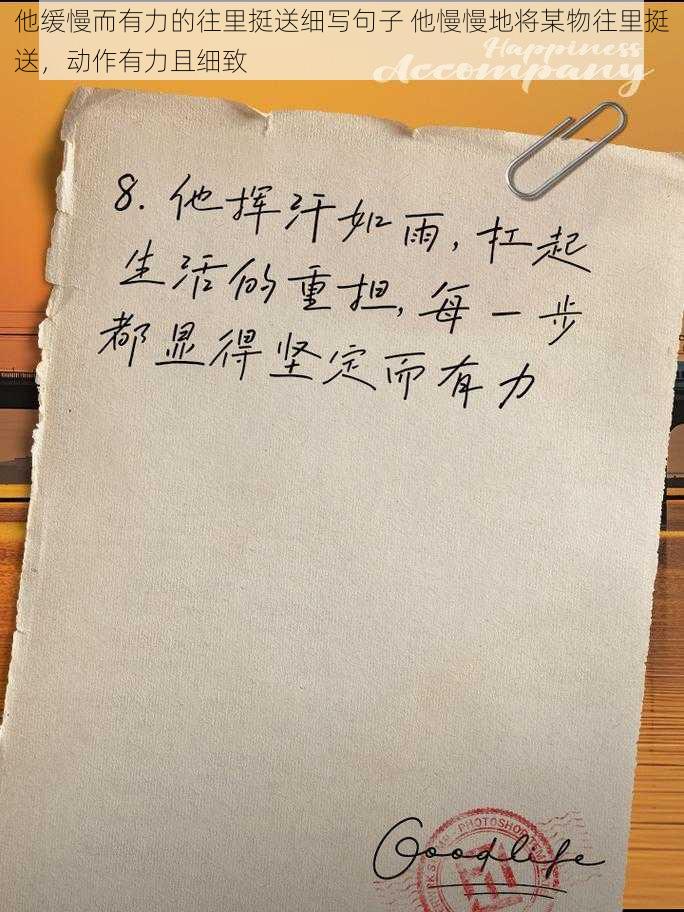 他缓慢而有力的往里挺送细写句子 他慢慢地将某物往里挺
送，动作有力且细致
Happiness
Accompany
8. 他挥汗如雨, 扛起
生活的重担, 每一步
都显得坚定而有力
PHOTOSHOP
Goodlife